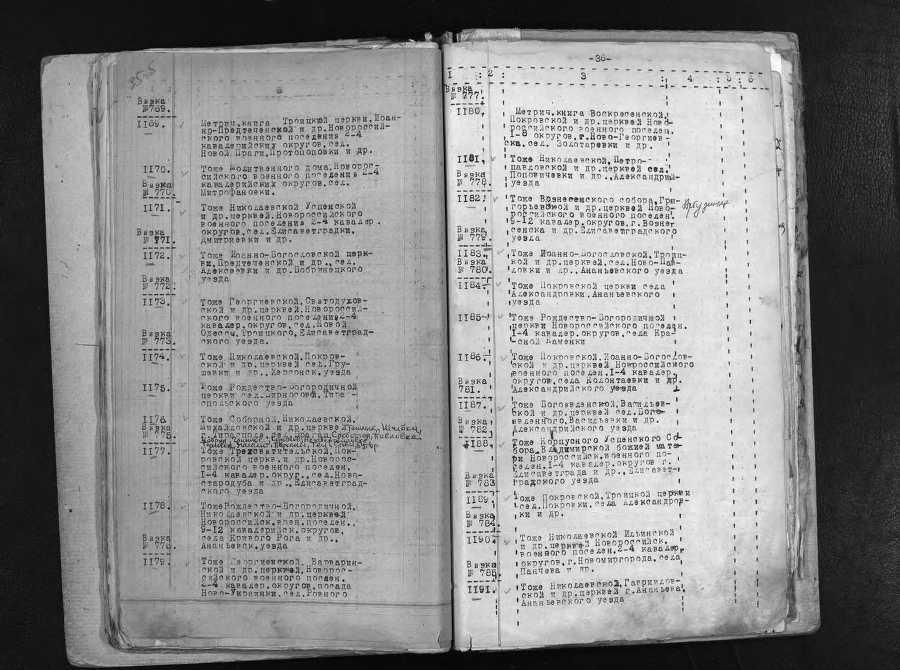 Вязка
№ 769.
II69.
Метрич.книга Троицкой церкви, Иоан-
но-Предтеченской и др.Новороссий-
ского военного поселения 2-4
кавалерийских округов, сел.
Новой Праги, Протопоповки и др.
II70.
Тоже Молитвенного дома, Новорос-
сийского военного поселения 2-4
кавалерийских округов, сел.
Митрофановки.
Вязка
№ 770.
II71.
Тоже Николаевской Успенской
и др.церквей, Новороссийского
военного поселения 2-4 кавалер.
округов, сел. Елисаветградки,
Дмитриевки и др.
Вязка
№ 771.
II72.
Тоже Иоанно-Богословской церк-
ви, Предтеченской и др., сел.
Алексеевки и др.Бобринецкого
уезда
Вязка
№ 772.
II73.
Тоже Георгиевской, Святодухов-
ской и др.церквей, Новороссий-
ского военного поселения 2-4
кавалер. округов, сел. Новой
Одессы, Троицкого, Елисаветград-
ского уезда.
Вязка
№ 773.
II74.
Тоже Николаевской, Покров-
ской и др.церквей сел. Гру-
шевки и др., Херсонск. уезда
II75.
Тоже Рождество-Богородичной
церкви сел. Бирносово, Тира-
спольского уезда
II76
Тоже Соборной, Николаевской,
Михайловской и др.церквей
Вязка
№ 775.
II77.
Тоже Трехсвятительской, Пок-
ровской церкв. и др. Новорос-
сийского военного поселен.
I-4 кавалер. округ., сел. Ново-
стародуба и др., Елисаветград-
ского уезда
II78.
Тоже Рождество-Богородичной,
Николаевской и др.церквей
Новороссийск.воен.поселен.,
9-I2 кавалерийск.округов,
села Кривого Рога и др.,
Ананьевск.уезда
Вязка
№ 776
II79.
Тоже Георгиевской, Варварин-
ской и др.церквей, Новорос-
сийского военного поселен.
2-4 кавалер.округов, посада
Ново-Украинки, сел. Ровного
-36-
I 2 3 4 5 6
Вязка
№ 777.
II80.
Метрич.книга Воскресенской,
Покровской и др.церквей Ново-
российского военного поселен.
I-8 округов, г.Ново-Георгиев-
ска, сел. Золотаревки и др.
II81.
Тоже Николаевской, Петро-
павловской и др.церкв сел.
Поповичевки и др., Александрий-
уезда
Вязка
№ 778.
II82.
Тоже Вознесенского собора, Гри-
горьевской и др.церквей Ново-
российского военного поселен.
9-I2 кавалер.округов, г. Возне-
сенска и др.Елисаветградского
уезда
Арбузинка
Вязка
№ 779.
II83.
Тоже Иоанно-Богословской, Троиц-
кой и др.церквей, сел.Ново-Пав-
ловки и др., Ананьевского уезда
Вязка
№ 780.
II84.
Тоже Покровской церкви села
Александровки, Ананьевского
уезда
II85.
Тоже Рождество-Богородичной
церкви Новороссийского поселен.
I-4 кавалер.округов, села Кра-
сной Каменки
II86.
Тоже Покровской, Иоанно-Богослов-
ской и др.церквей, Новороссийского
военного поселен. I-4 кавалер.
округов, села Колонтаевки и др.
Александрийского уезда
Вязка
781.
II87.
Тоже Богоявленской, Васильев-
ской и др.церквей сел. Бого-
явленного, Васильевки и др.
Александрийского уезда
Вязка
№ 782
II88.
Тоже Корпусного Успенского Со-
бора, Владимирской божией мате-
ри Новороссийск.военного по-
селен. I-4 кавалер.округов г.
Елисаветграда и др., Елисавет-
градского уезда
Вязка
№ 783
II89.
Тоже Покровской, Троицкой церкви
сел. Покровки, села Александров-
ки и др.
Вязка
№ 784.
II90.
Тоже Николаевской Ильинской
и др.церквей Новороссийск.
военного поселен. 2-4 кавалер.
округов, г.Новомиргорода, села
Панчева и др.
Вязка
№ 785
II91.
Тоже Николаевской, Гавриилов-
ской и др.церквей г.Ананьева
Ананьевского уезда